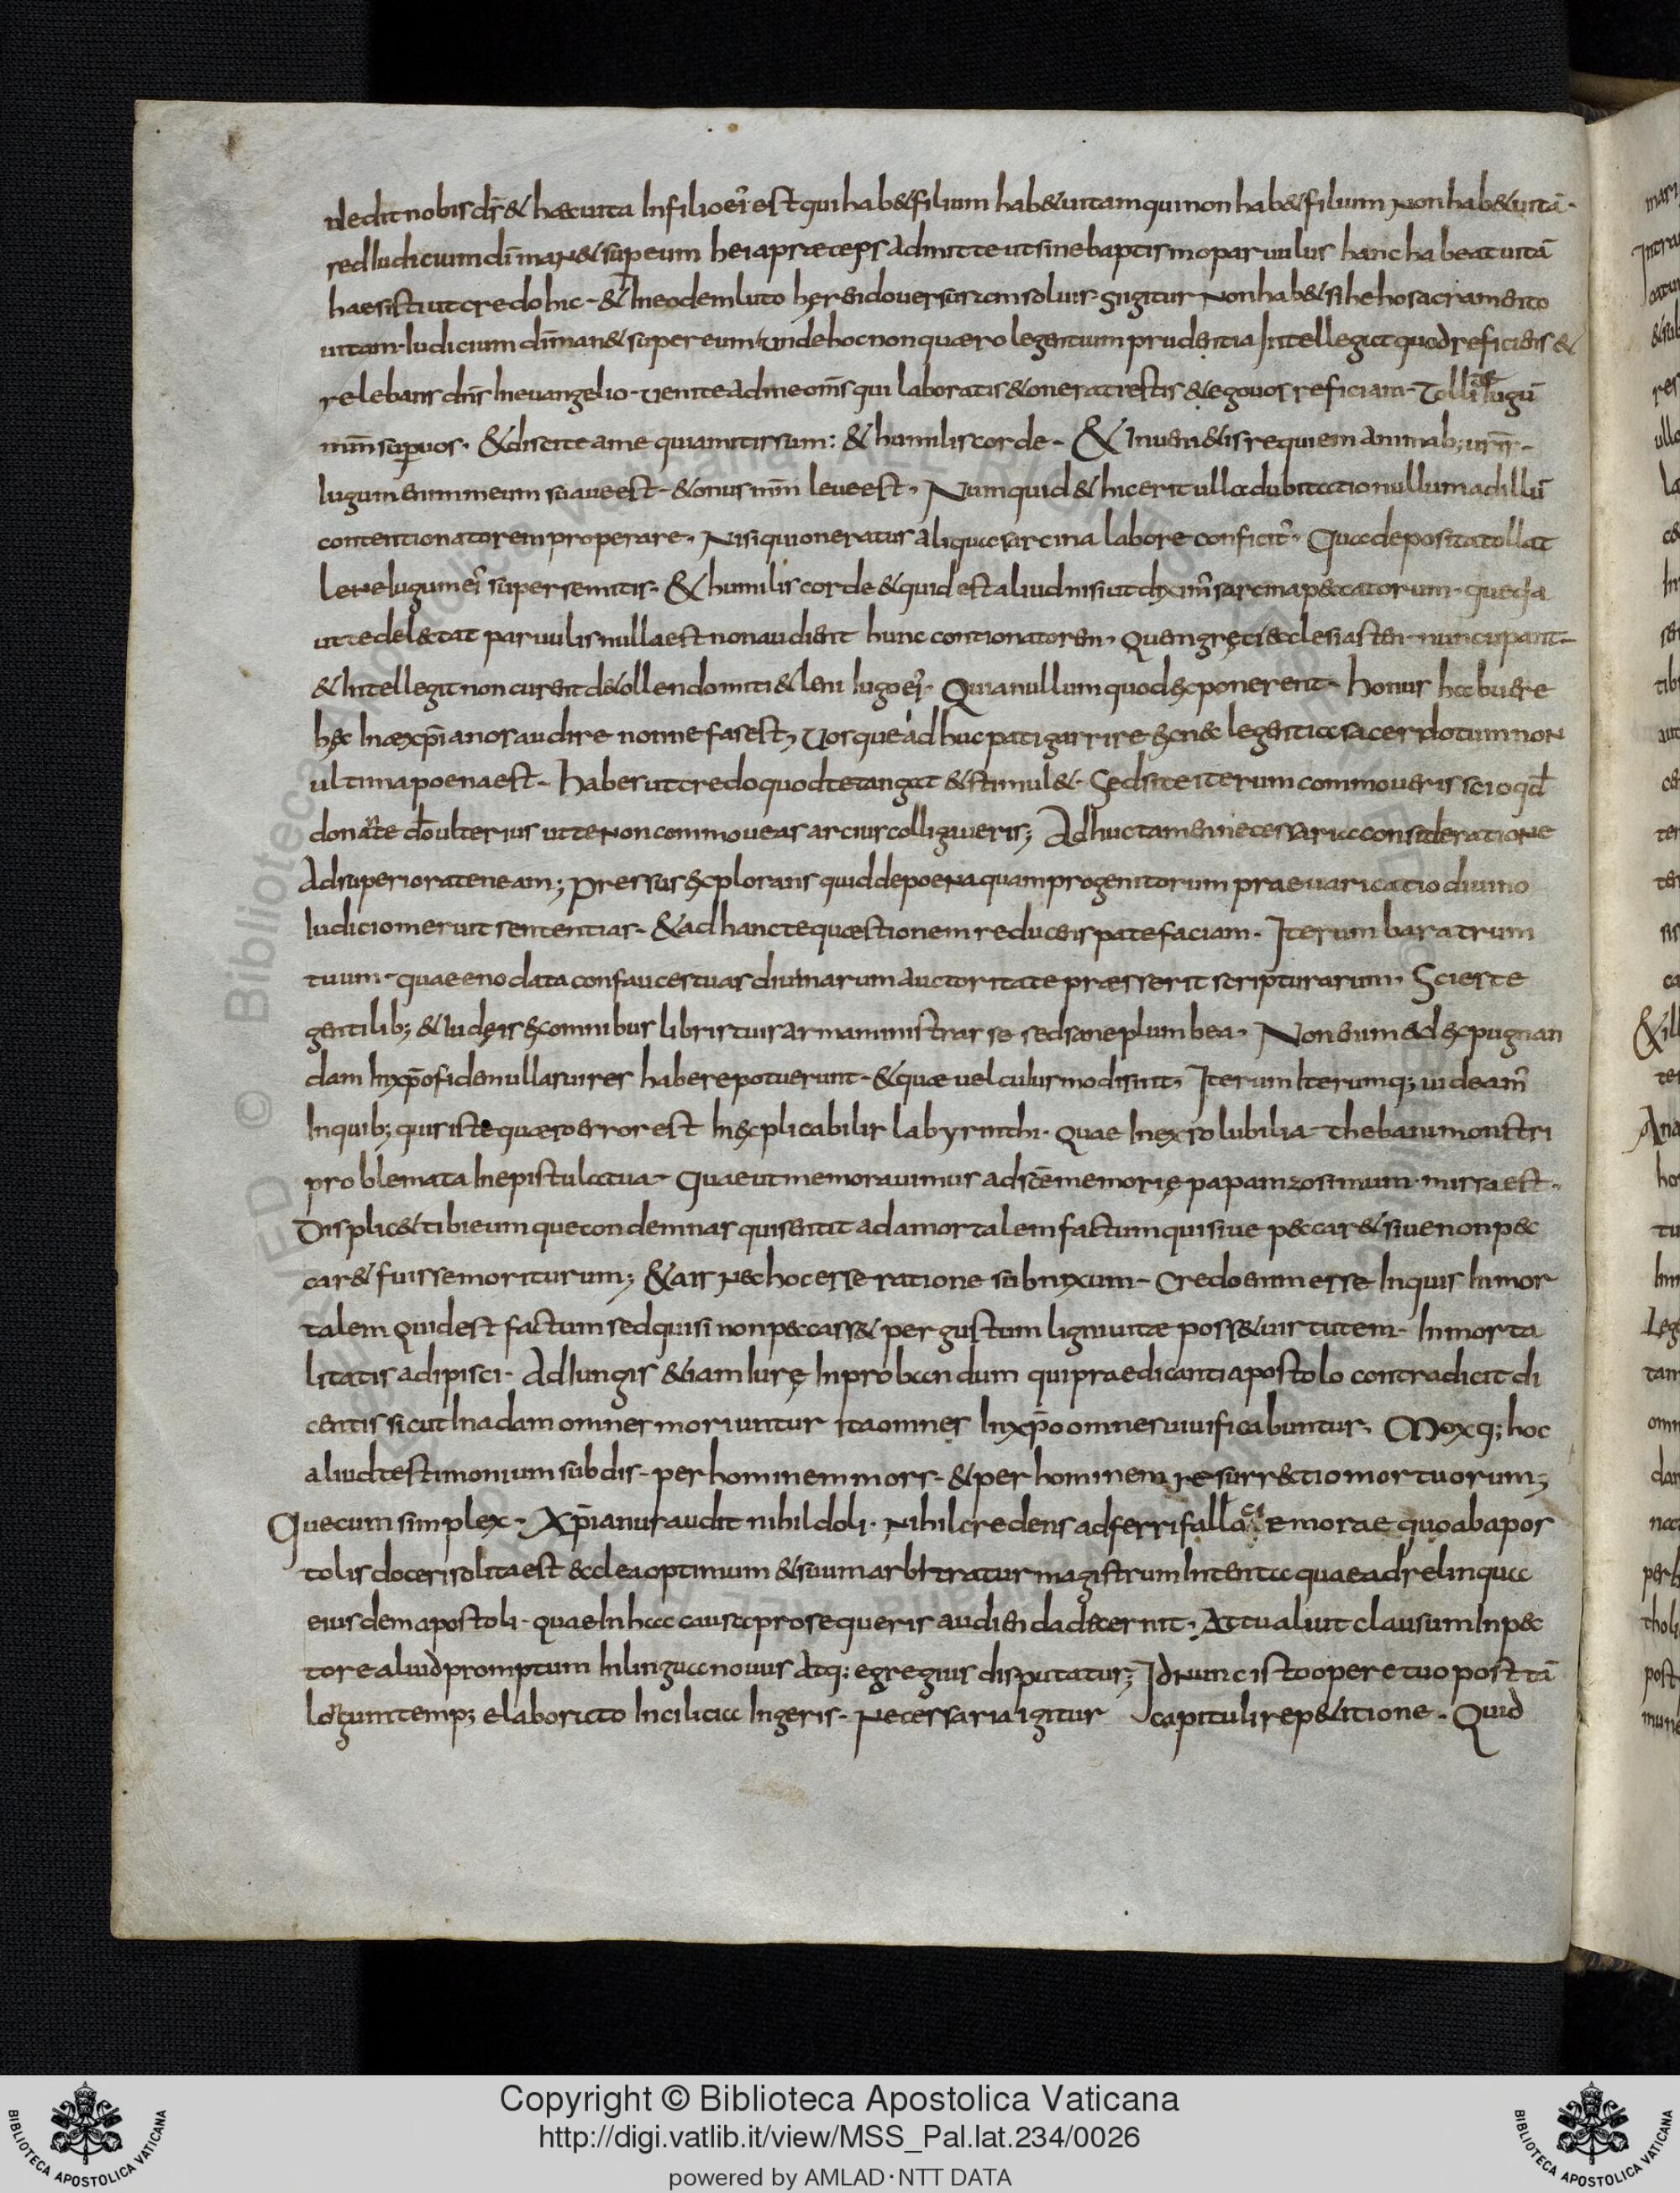 dedit nobis ds̄ & haec uita In filio eı̄ est qui hab& filium hab& uitam qui non hab& filium Non hab& uitā·
sed Iudicium dī man& sup eum hei apraeceps admitte ut sine baptismo paruulus hanc habeat uitā
haesisti ut credo hic· & In eodem luto
uitam· Iudicium dī man& super eum unde hoc non quaero legentium prudentia Intellegit quod reficiens &
relebans dn̄s In euangelio· uenite ad me om̄s qui laboratis & onerati estis & ego uos reficiam· Tollite Iugū
mm̄ sup uos· & discite a me quia mitis sum: & humilis corde· & Inueni&is requiem animab; ur̄is·
Iugum enim meum suaue est· & onus mm̄ leue est· Numquid & hic erit ulla dubitatio nullum ad illū
contentionatorem properare· Nisi qui oneratus aliqua sarcina labore conficit᷑· Qua deposita tollat
lene Iugum eı̄ super se mitis· & humilis corde & quid est aliud nisi ut diximꝰ sarcina peccatorum· que q̄a
ut te delectat paruulis nulla est non audient hunc contionatorem· Quem greci ecclesiasten nuncupant·
& Intellegit non curent de tollendo miti & leni Iugo eı̄· Quia nullum quod exponerent· honus habuere
hęc In xp̄ianos audire nonne fas est, Uos que adhuc pati garrire legentia sacerdotum non
ultima poena est· habes ut credo quod te tangat & stimul&· Sed si te iterum commoueris scio qd̄
donante dō ulterius ut te non commoueas arcius colligaueris; Adhuc tamen necessaria consideratione
Ad superiora teneam; Pressus explorans quid de poena quam progenitorum praeuaricatio diuino
Iudicio meruit sententias· & ad hanc te quaestionem reducens patefaciam· Iterum baratrum
tuum· quae enodata confauces tuas diuinarum auctoritate praesserit scripturarum· Scis te
gentilib; & Iudęis ex omnibus libris tuis arma ministrasse sed sane plumbea· Non enim ad expugnan
dam In xp̄o fidem ullas uires habere potuerunt· & quae uel cuIusmodi sint, Iterum Iterumq; uideam᷑
In quib; quis iste quaeso error est Inexplicabilis labyrinthi· quae Inexsolubilia thebani monstri
problemata In epistula tua· Quae ut memorauimus ad scē memorię papam zosimum· missa est·
Displic& tibi eumque condemnas qui sentit adam ortalem factum qui siue peccar& siue non pec
car& fuisse moriturum; & ais nec hoc esse ratione subnixum· Credo enim esse Inquis Inmor
talem quidest factum sed qui si non peccass& per gustum ligni uitae poss& uirtutem· Inmorta
litatis adipisci· AdIungis &iam Iure Inprobandum qui praedicanti apostolo contradicit di
centis sicut In adam omnes moriuntur ita omnes In xp̄o omnes uiuificabuntur· Moxq; hoc
aliud testimonium subdis· per hominem mors· & per hominem resurrectio mortuorum;
Quecum simplex· Xp̄ianus audit nihil doli· Nihil credens adferri emorae quo ab apos
tolis doceri solita est ecclea optimum & suum arbitratur magistrum Intenta quae ad relinqua
eiusdem apostoli· quae In hac causa prosequeris audienda decernit· At tu aliut clausum In pec
tore aliud promptum In lingua nouus atq; egregius disputatur; Id nunc isto opere tuo post tā
longum temp; elaborato In cilicia Ingeris· Necessaria igitur capituli repetitione· Quid
Copyright © Biblioteca Apostolica Vaticana
http://digi.vatlib.it/view/MSS_Pal.lat.234/0026
powered by AMLAD·NTT DATA